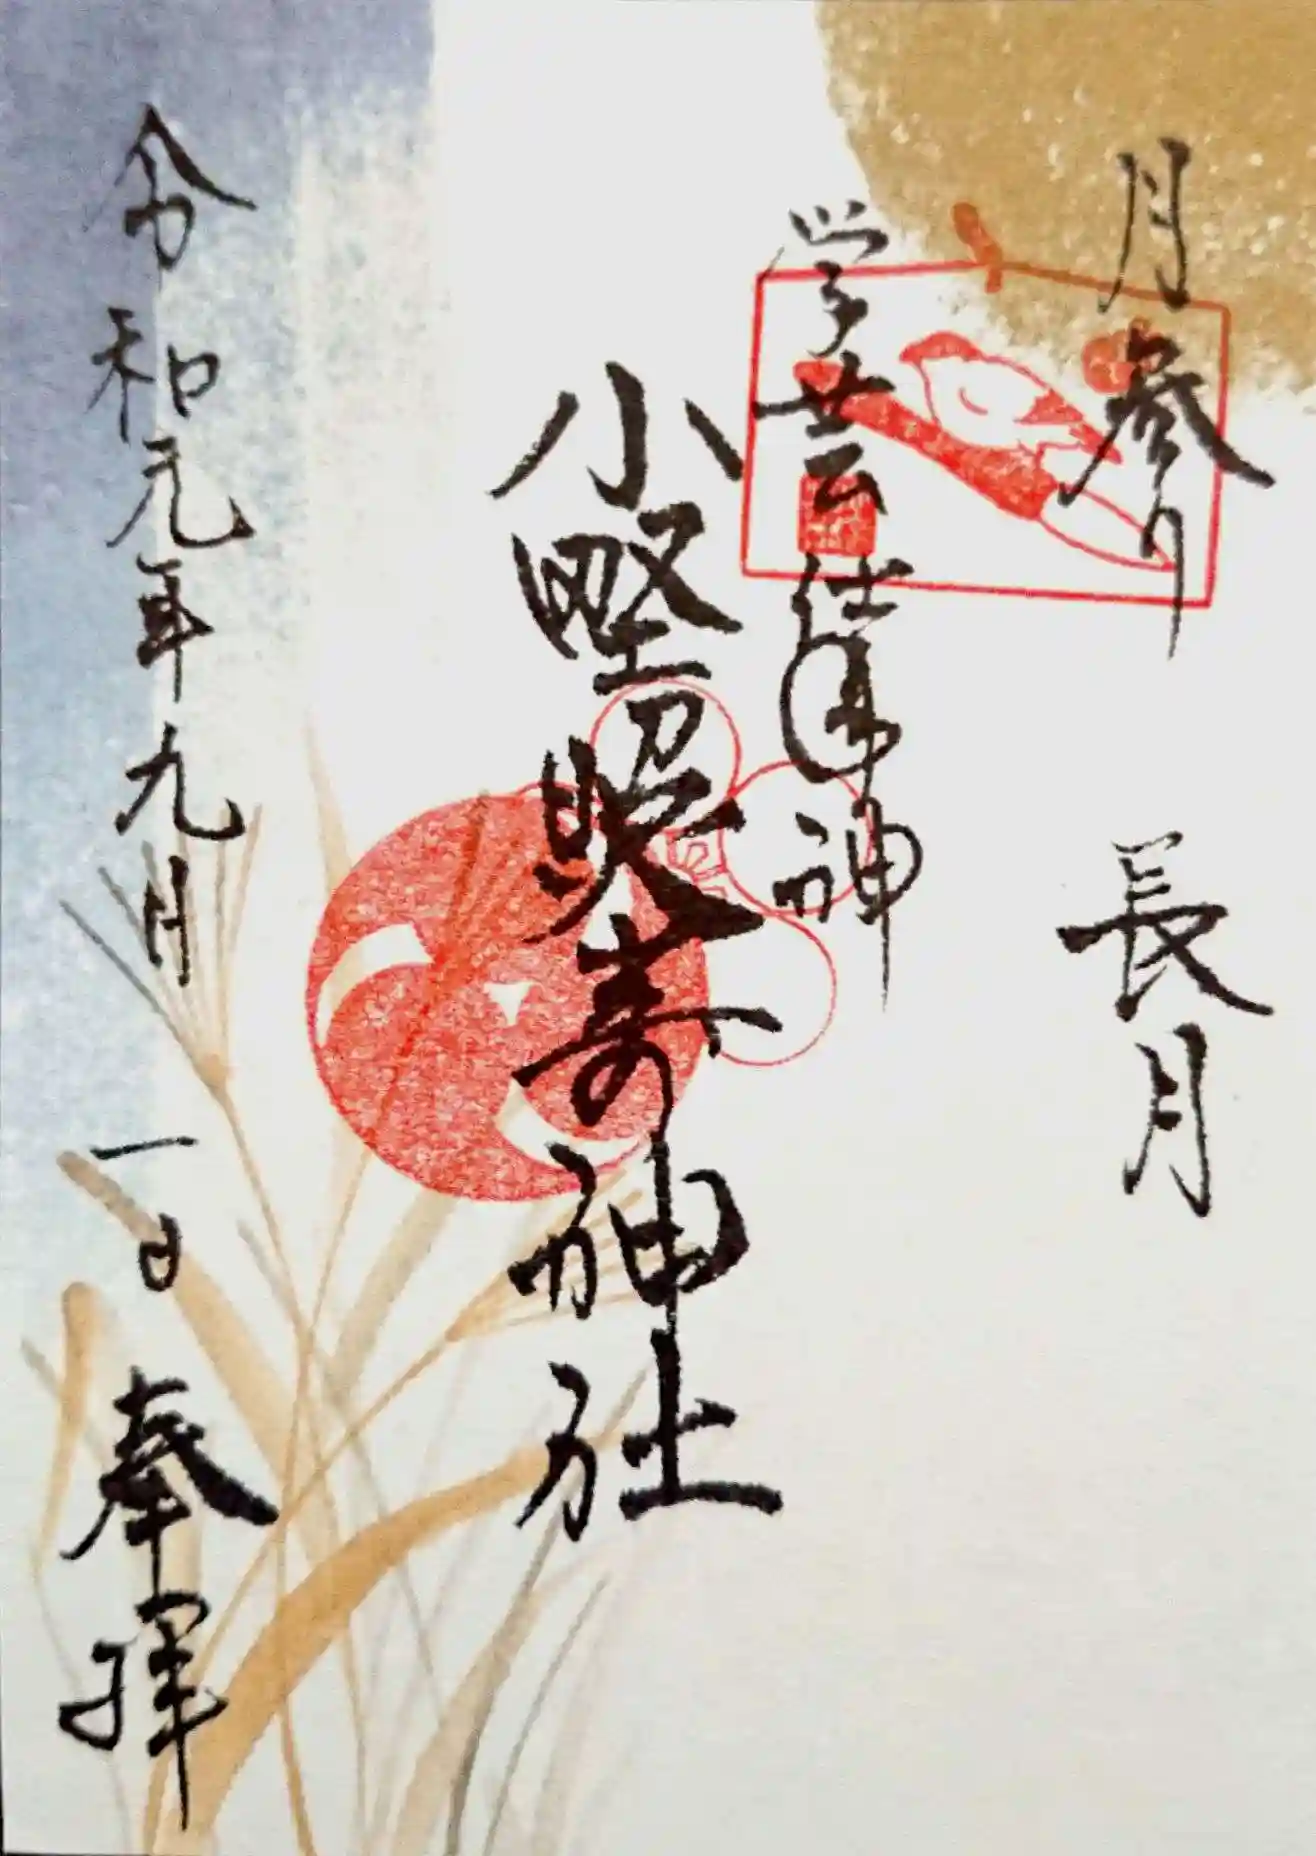 月参り 長月
学芸仕事神
小野照崎神社
令和元年九月一日 奉拝